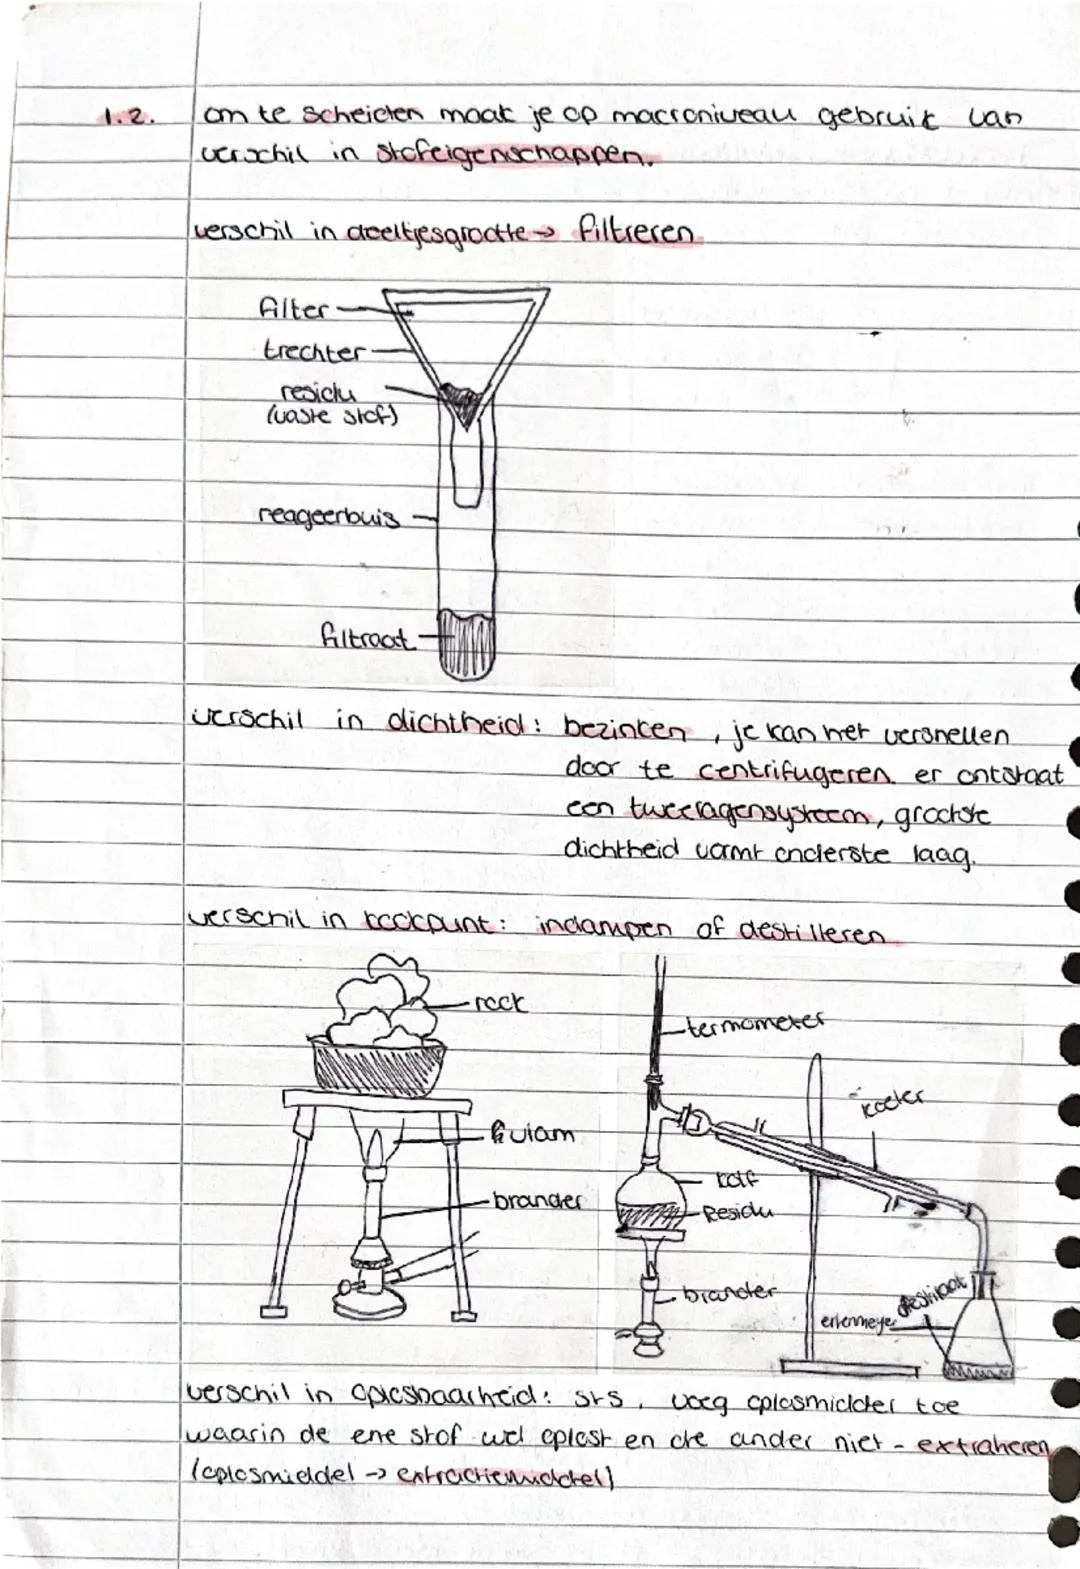 1.2. om te scheiden maak je op macroniveau gebruik van
verschil in stofeigenschappen.
verschil in deeltjesgrootte → filtreren
filter
trechter
residu
(vaste stof)
reageerbuis
filtraat
verschil in dichtheid: bezinken, je kan het versnellen
door te centrifugeren. er ontstaat
een tweelagensysteem, grootste
dichtheid vormt onderste laag.
verschil in kookpunt: indampen of destilleren
rook
termometer
koeler
vlam
kolf
brander
Residu
brander
destilaat
erlenmeyer
verschil in oplosbaarheid: s+s, voeg oplosmiddel toe
waarin de ene stof wel oplost en de ander niet - extraheren
(oplosmiddel → extractiemiddel)